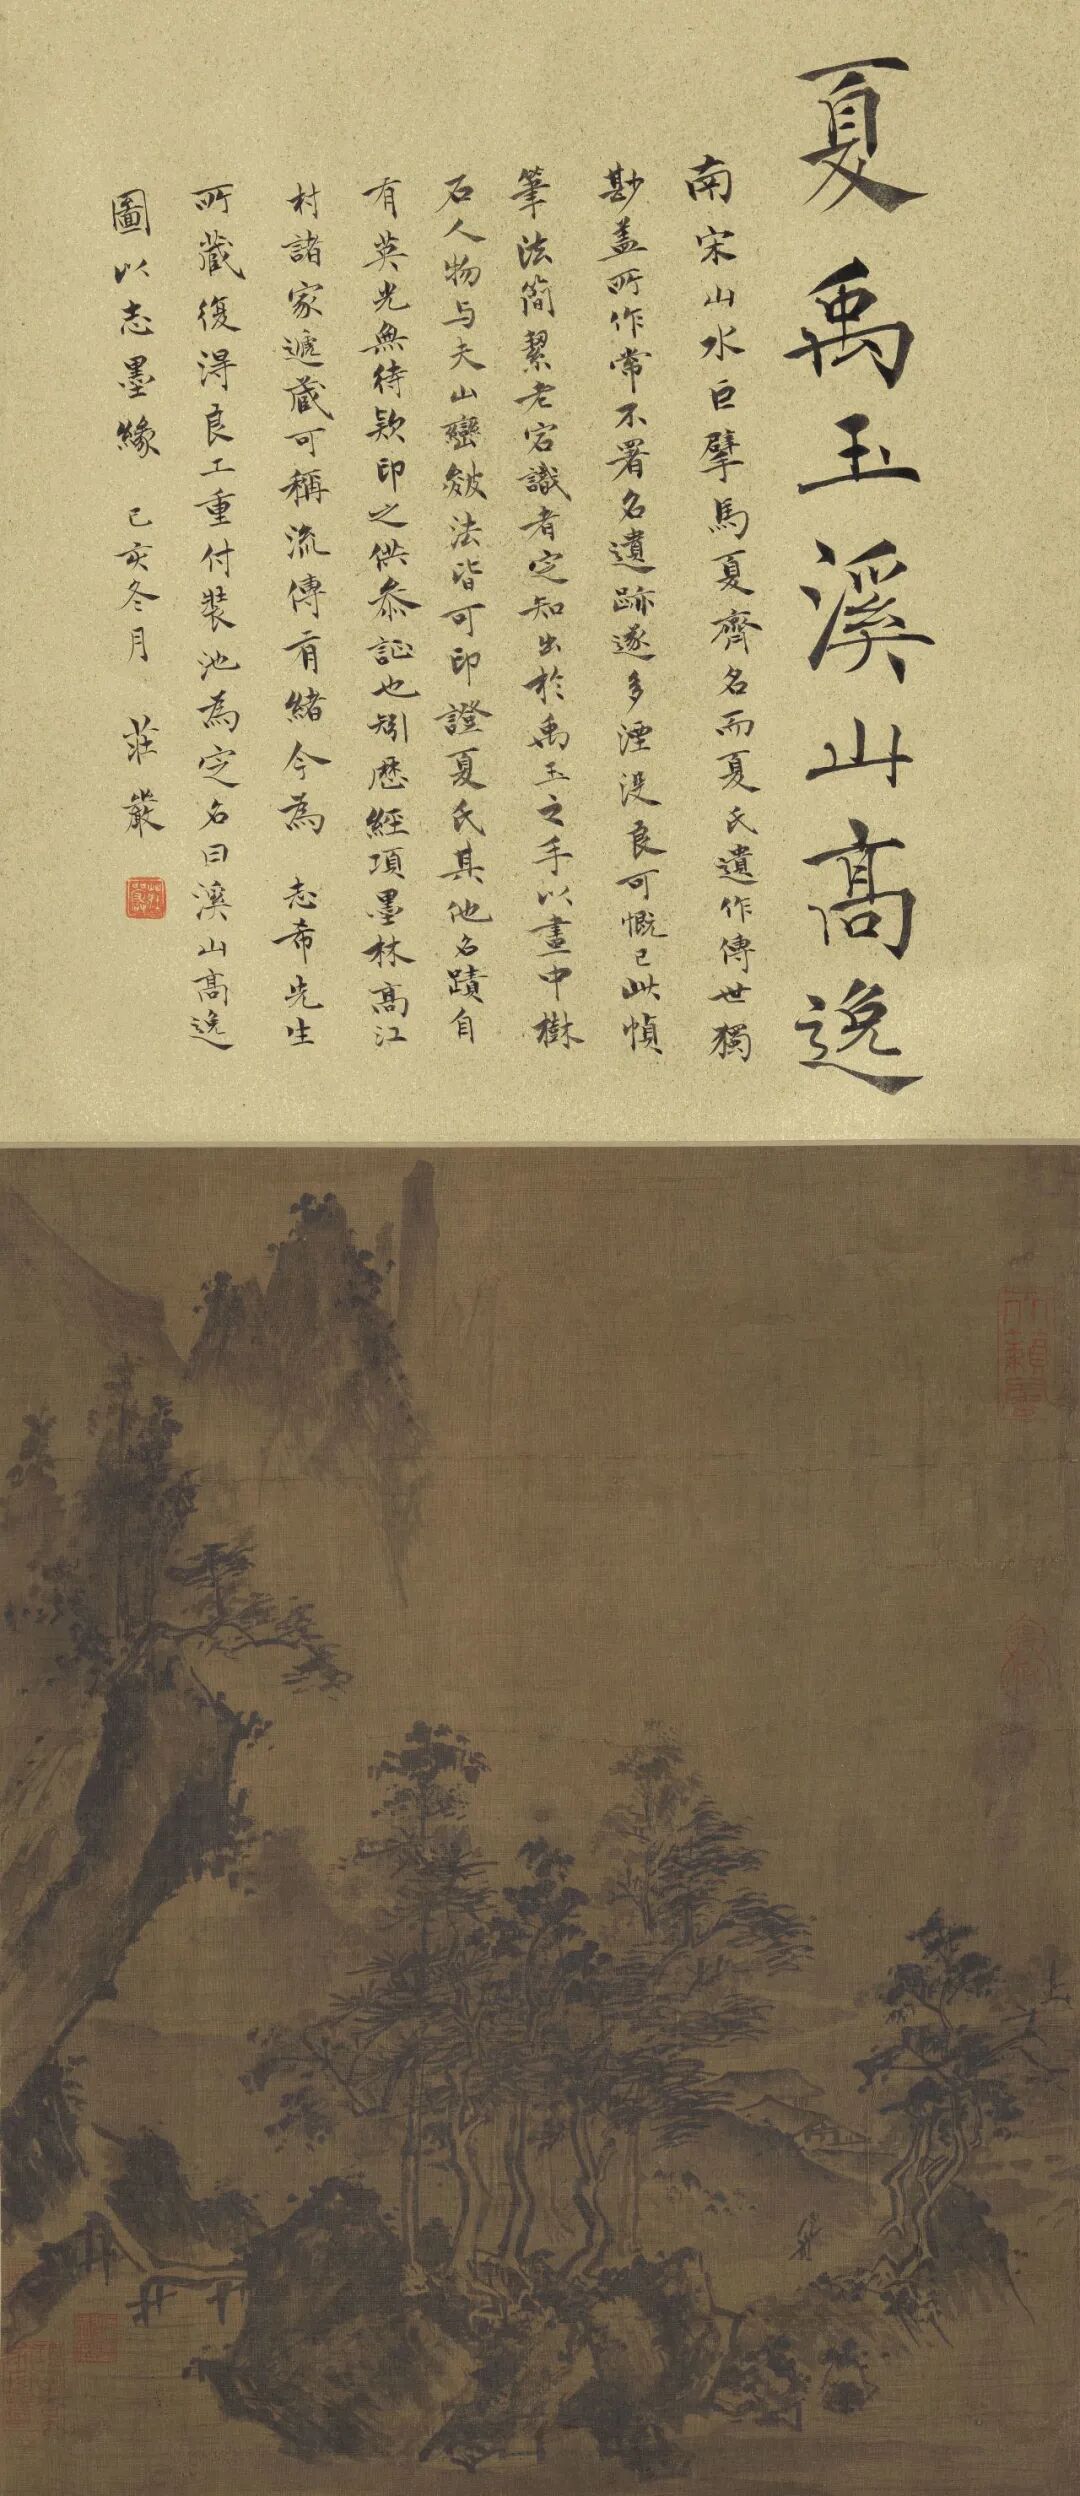 夏禹玉溪山高逸
南宋山水巨擘馬夏齊名而夏氏遺作傳世獨
尠盖所作常不署名遺跡遂多湮没良可慨已此幀
筆法簡絜老宕識者定知出於禹玉之手以畫中樹
石人物与夫山巒皴法皆可印證夏氏其他名蹟自
有英光無待欵印之供叅証也矧歴經項墨林高江
村諸家遞蔵可稱流傳有緒今為 志希先生
所蔵復淂良工重付裝池為定名曰溪山高逸
圖以志墨緣 己亥冬月 莊嚴